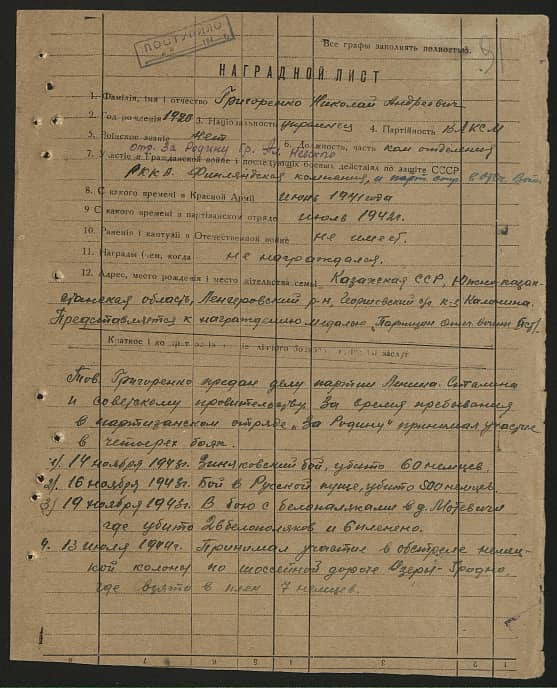 ПОСТУПИЛО
Все графы заполнять полностью.
НАГРАДНОЙ ЛИСТ
1. Фамілія, імя і отчество Григоренко Николай Андреевич
2. Год рождения 1920 3. Національность украинец 4. Партійность ВЛКСМ
5. Воінское званіе нет 6. Должность, часть ком. отделения
отр. За Родину Гр. Ал. Невско
7. Участіе в Гражданской войне і последующих боевых действіях по защіте СССР
РККА. Финляндская компания, и парт. отр в отеч. Вой.
8. С какого времені в Красной Арміі июнь 1941 года
9 С какого времені в партізанском отряде июль 1942г.
10. Раненія і кантузіі в Отечественной войне не имеет.
11. Награды (чем, когда не награждался.
12. Адрес, место рожденія і место жітельства семьі Казахская ССР, Южно-казах-
станская область, Ленгеровский р-н, Георгиевский с/с к-з Калинина.
Представляется к награждению медалью "Партизан Отеч. войны II ст."
Краткое і заслуг
Тов. Григоренко предан делу партии Ленина-Сталина
и советскому правительству. За время пребывания
в партизанском отряде "За Родину" принимал участие
в четырех боях.
1) 14 ноября 1943г. Зиняковский бой, убито 60 немцев.
2) 16 ноября 1943г. Бой в Русской пуще, убито 500 немцев.
3) 19 ноября 1943г. В бою с белополяками в д. Мотевичи
где убито 26 белополяков и 6 пленено.
4. 13 июля 1944г. Принимал участие в обстреле немец-
кой колоны по шоссейной дороге Озеры-Гродно,
где взято в плен 7 немцев.